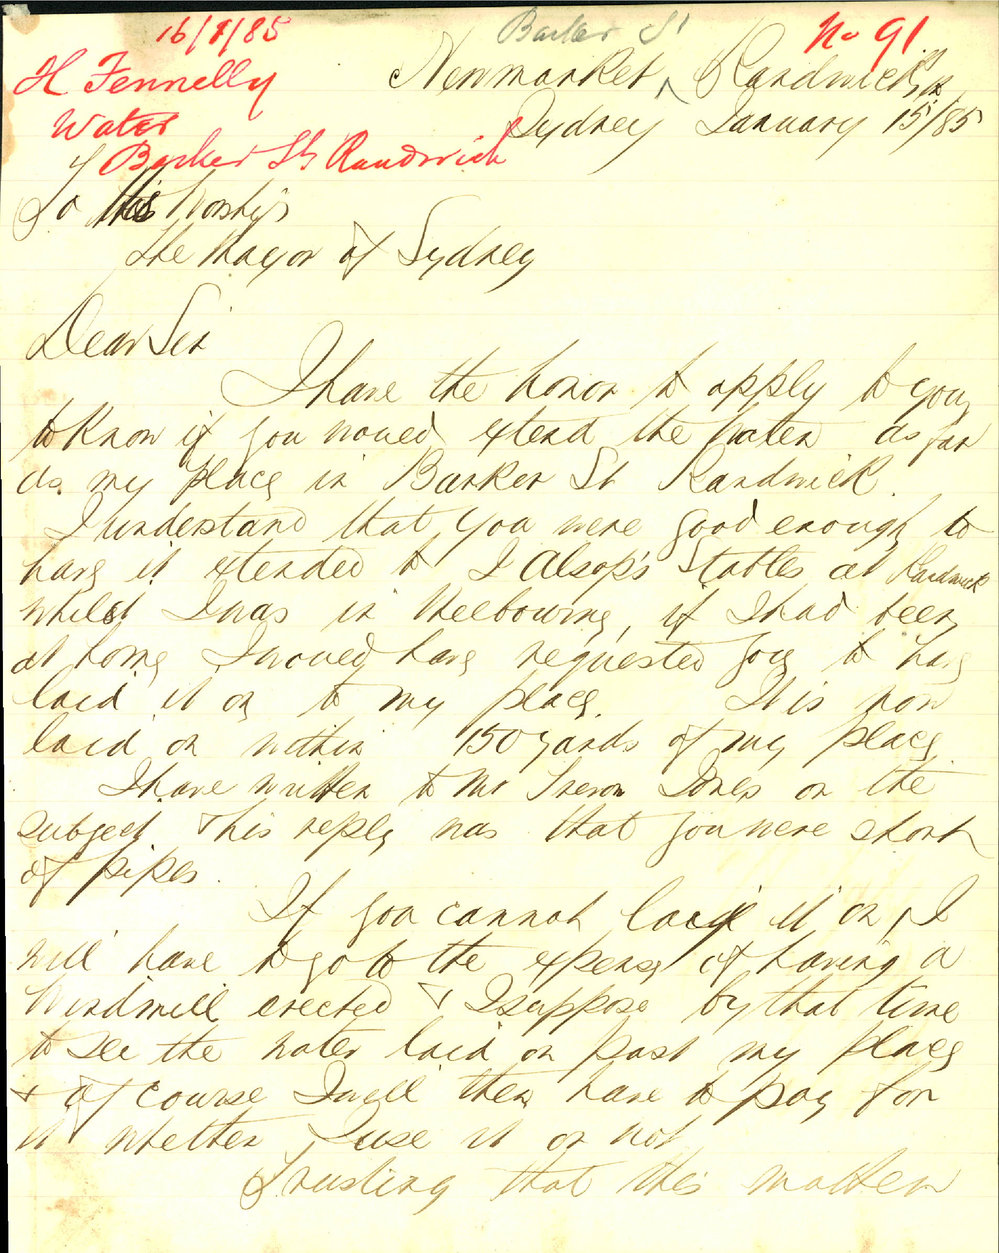 16/1/85
No 91
H Fennelly
Water
Barker St Randwick
Barker St
Newmarket, Randwick
Sydney January 15/85
To His Worship
The Mayor of Sydney
Dear Sir
I have the honor to apply to you
to know if you would extend the water as far
as my place in Barker St Randwick.
I understand that you were good enough to
have it extended to I Alsop's Stables at Randwick
whilst I was in Melbourne, if I had been
at home I would have requested you to have
laid it on to my place. It is now
laid on within 150 yards of my place
I have written to Mr Trevor Jones on the
subject & his reply was that you were short
of pipes.
If you cannot laid it on, I
will have to go to the expense of having a
Windmill erected & I suppose by that time
to see the water laid on past my place
& of course I will then have to pay for
it whether I use it or not
Trusting that this matter